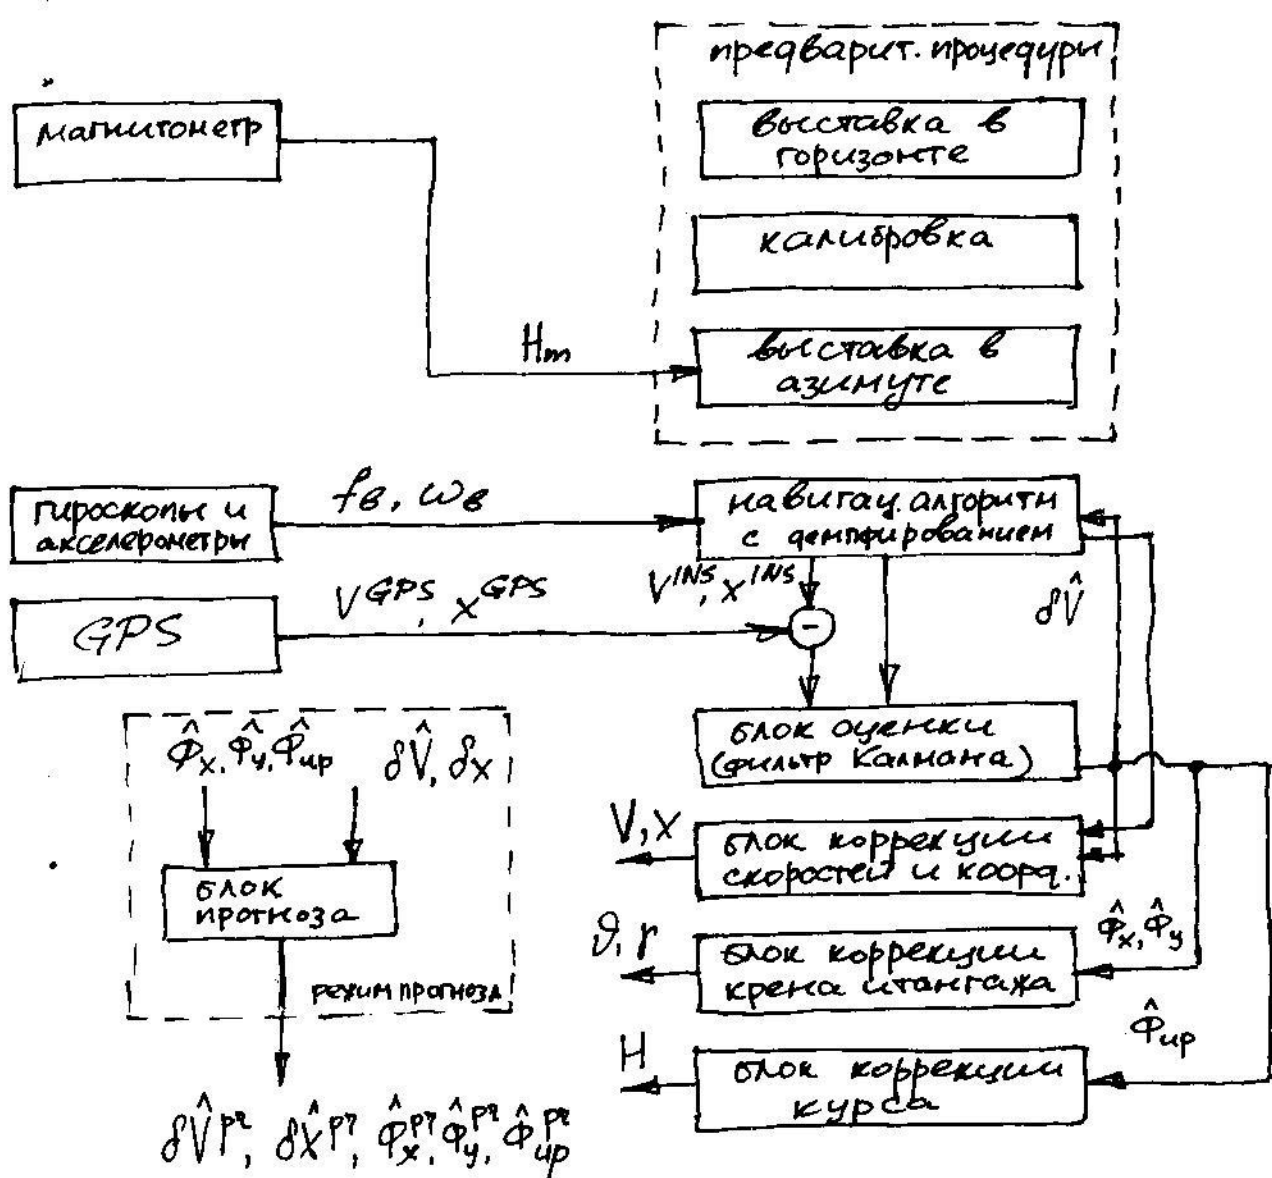 предварит. процедуры
магнитометр
выставка в
горизонте
калибровка
Hm
выставка в
азимуте
гироскопы и
акселерометры
fв, ωв
навигац. алгоритм
с демпфированием
GPS
V^GPS, x^GPS
V^INS, x^INS
-
δV̂
блок оценки
(фильтр Калмана)
Φ̂x, Φ̂y, Φ̂up
δV̂, δx
блок
прогноза
режим прогноза
δV̂^pr, δX̂^pr, Φ̂x^pr, Φ̂y^pr, Φ̂up^pr
V, X
блок коррекции
скоростей и коорд.
ϑ, γ
блок коррекции
крена и тангажа
Φ̂x, Φ̂y
H
блок коррекции
курса
Φ̂up